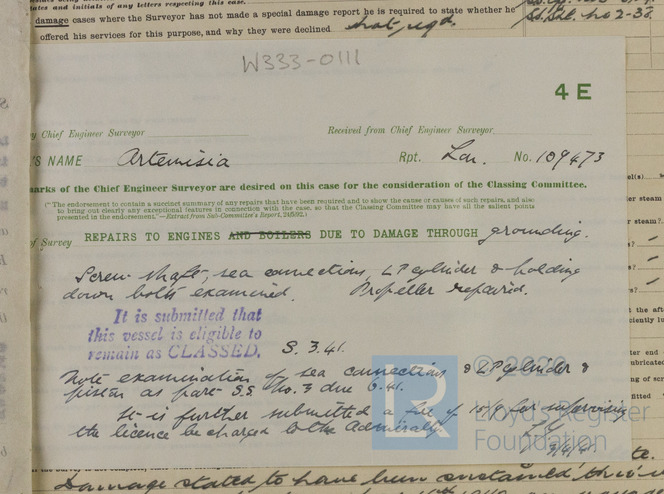 tates and initials of any letters respecting this case.
damage cases where the Surveyor has not made a special damage report he is required to state whether he
offered his services for this purpose, and why they were declined not reqd.
W333-0111
4 E
y Chief Engineer Surveyor
Received from Chief Engineer Surveyor
'S NAME Artemisia Rpt. Lon. No. 109473
marks of the Chief Engineer Surveyor are desired on this case for the consideration of the Classing Committee.
("The endorsement to contain a succinct summary of any repairs that have been required and to show the cause or causes of such repairs, and also
to bring out clearly any exceptional features in connection with the case, so that the Classing Committee may have all the salient points
presented in the endorsement."—Extract from Sub-Committee's Report, 24/5/92.)
of Survey REPAIRS TO ENGINES AND BOILERS DUE TO DAMAGE THROUGH grounding.
Screw shaft, sea connections, LP cylinder & holding
down bolts examined. Propeller repaired.
It is submitted that
this vessel is eligible to
remain as CLASSED. S. 3.41.
Note examination of sea connections & LP cylinder &
piston as part S.S. No. 3 due 6.41.
It is further submitted a fee of 10/6 for supervising
the licence be charged to the Admiralty.
© 2020
Lloyd's Register
Foundation
LR
Damage stated to have been sustained